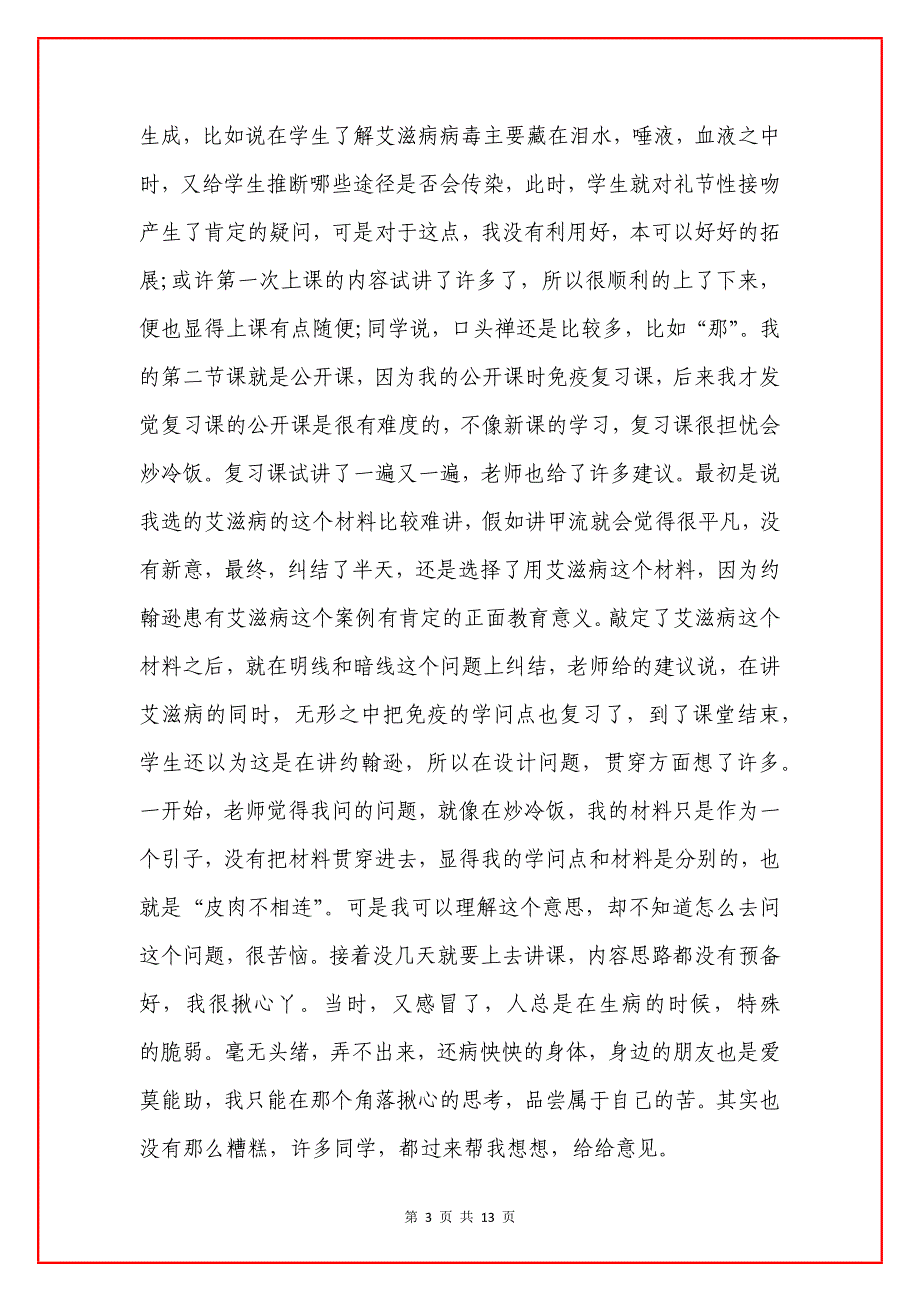 生成，比如说在学生了解艾滋病病毒主要藏在泪水，唾液，血液之中
时，又给学生推断哪些途径是否会传染，此时，学生就对礼节性接吻
产生了肯定的疑问，可是对于这点，我没有利用好，本可以好好的拓
展；或许第一次上课的内容试讲了许多了，所以很顺利的上了下来，
便也显得上课有点随便；同学说，口头禅还是比较多，比如“那”。我
的第二节课就是公开课，因为我的公开课时免疫复习课，后来我才发
觉复习课的公开课是很有难度的，不像新课的学习，复习课很担忧会
炒冷饭。复习课试讲了一遍又一遍，老师也给了许多建议。最初是说
我选的艾滋病的这个材料比较难讲，假如讲甲流就会觉得很平凡，没
有新意，最终，纠结了半天，还是选择了用艾滋病这个材料，因为约
翰逊患有艾滋病这个案例有肯定的正面教育意义。敲定了艾滋病这个
材料之后，就在明线和暗线这个问题上纠结，老师给的建议说，在讲
艾滋病的同时，无形之中把免疫的学问点也复习了，到了课堂结束，
学生还以为这是在讲约翰逊，所以在设计问题，贯穿方面想了许多。
一开始，老师觉得我问的问题，就像在炒冷饭，我的材料只是作为一
个引子，没有把材料贯穿进去，显得我的学问点和材料是分别的，也
就是“皮肉不相连”。可是我可以理解这个意思，却不知道怎么去问
这个问题，很苦恼。接着没几天就要上去讲课，内容思路都没有预备
好，我很揪心丫。当时，又感冒了，人总是在生病的时候，特殊
的脆弱。毫无头绪，弄不出来，还病怏怏的身体，身边的朋友也是爱
莫能助，我只能在那个角落揪心的思考，品尝属于自己的苦。其实也
没有那么糟糕，许多同学，都过来帮我想想，给给意见。
第 3 页 共 13 页